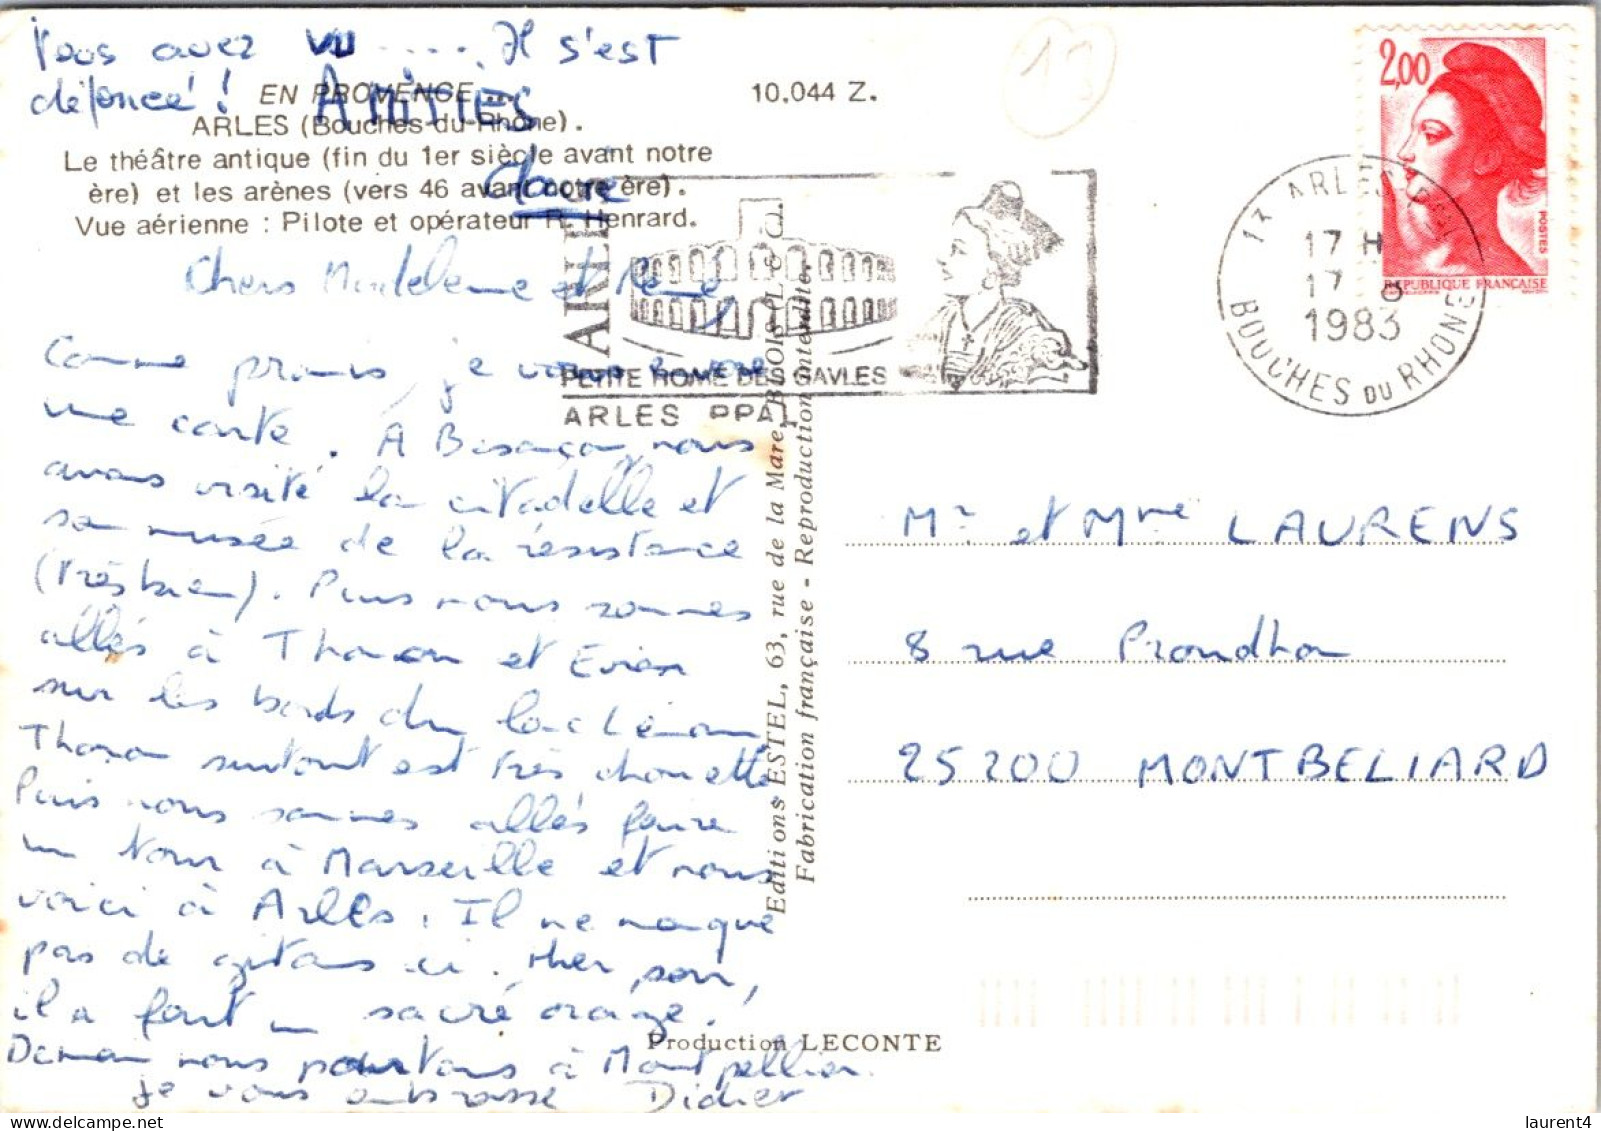 Vous avez vu .... Il s'est
défoncé !
Amitiés
Claire
EN PROVENCE...
10.044 Z.
ARLES (Bouches-du-Rhône).
Le théâtre antique (fin du 1er siècle avant notre
ère) et les arènes (vers 46 avant notre ère).
Vue aérienne : Pilote et opérateur R. Henrard.
Chers Madeleine et René,
Comme promis, je vous envoie
une carte. A Besançon, nous
avons visité la citadelle et
son musée de la résistance
(très bien). Puis nous sommes
allés à Thonon et Evian
sur les bords du lac Léman,
Thonon surtout est très chouette
Puis nous sommes allés faire
un tour à Marseille et nous
voici à Arles. Il ne manque
pas de gitans ici. Hier soir,
il a fait un sacré orage.
Demain nous partons à Montpellier.
Je vous embrasse Didier
Editions ESTEL, 63, rue de la Mare, BLOIS
Fabrication française - Reproduction interdite.
Production LECONTE
ARLES
PETITE ROME DES GAULES
ARLES PPAL
13 ARLES
17 H
17 8
1983
BOUCHES DU RHONE
13
2,00
POSTES
REPUBLIQUE FRANÇAISE
Mr et Mme LAURENS
8 rue Proudhon
25200 MONTBELIARD
laurent4